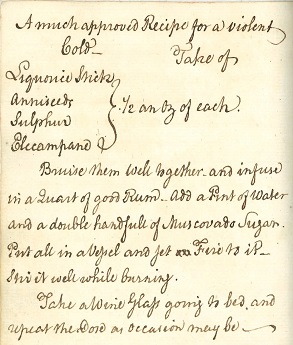 A much approved Recipe for a violent
Cold - Take of
Liquorice Stick
Anniseeds
Sulphur
Elecampane
½ an Oz of each.
Bruise them well together and infuse
in a Quart of good Rum - Add a Pint of Water
and a double handfull of Muscovado Sugar.
Put all in a Vessel and set on Fire to it -
Stir it well while burning.
Take a Wine Glass going to bed, and
repeat the Dose as occasion may be -